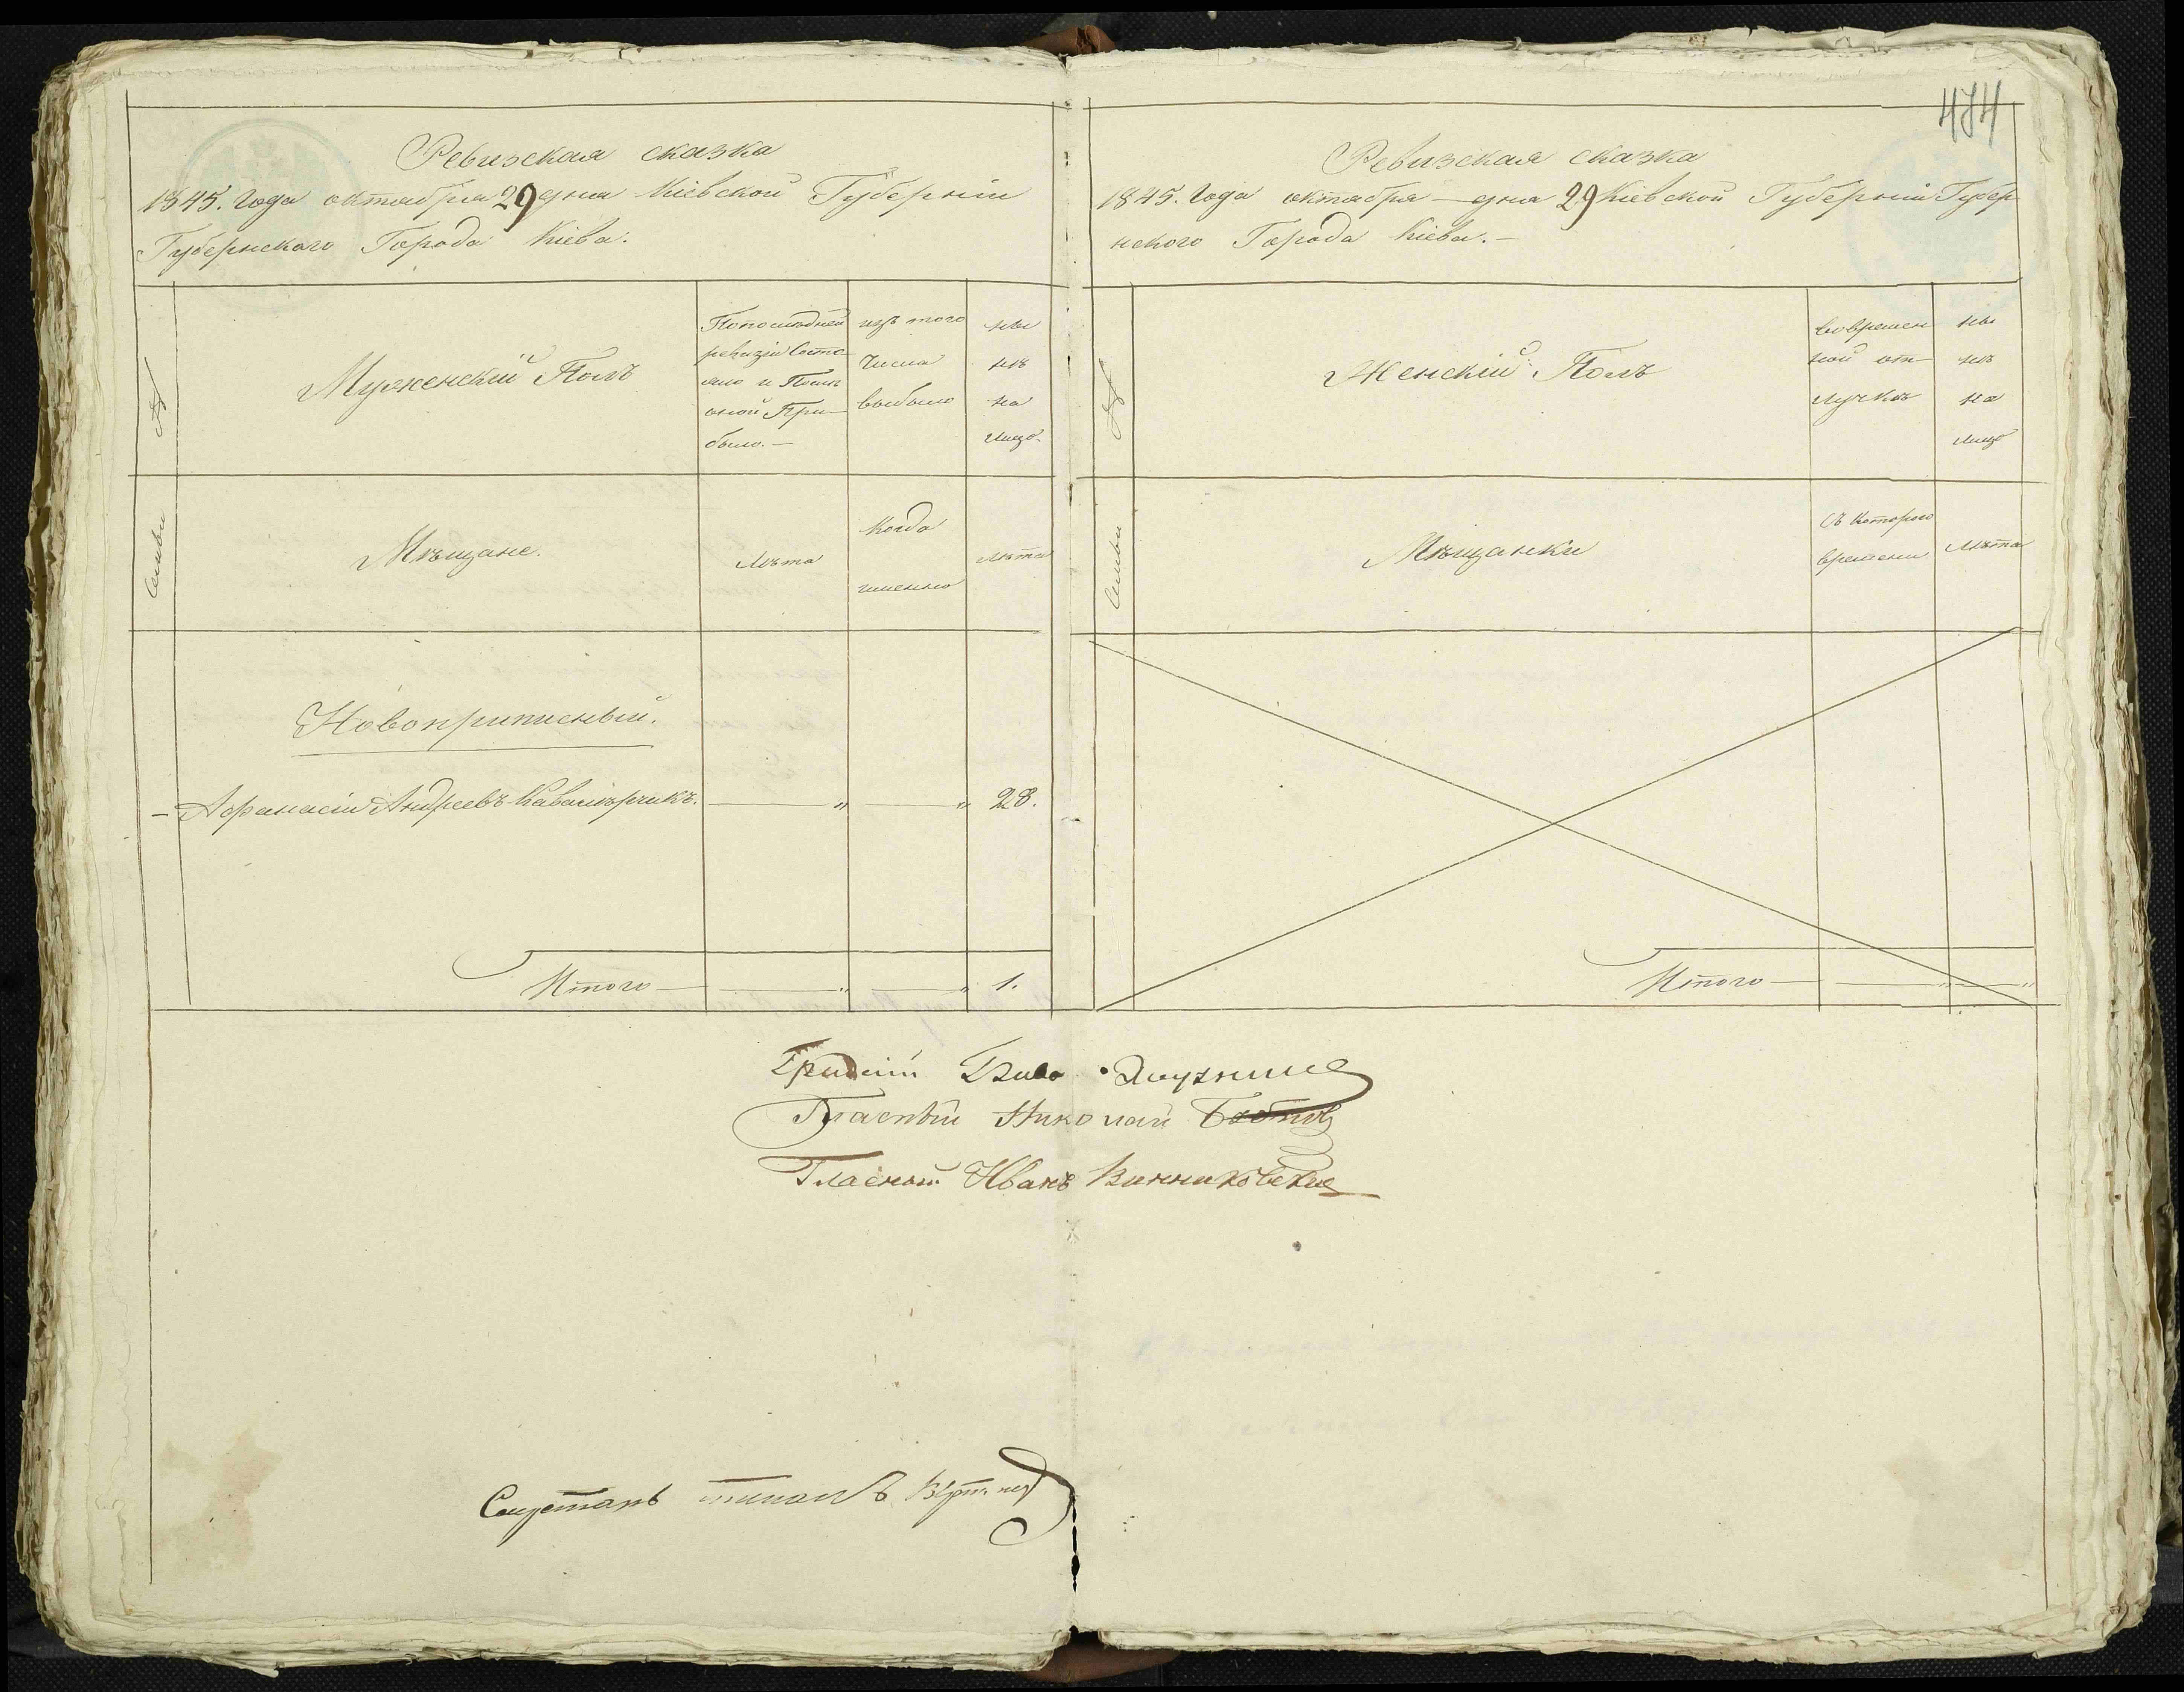 474
Ревизская сказка
1845. Года октября 29 дня Кіевской Губерніи
Губернскаго Города Кіева.
№ Семьи
Мужескій Полъ
По последней
ревизіи Состо
яло и После
оной При-
было.—
изъ того
числа
выбыло
ны
нѣ
на
лицо.
Мѣщане.
Лѣта
Когда
именно
Лѣта
Новоприписный.
— Афанасій Андреевъ Кавалѣрчикъ. — „ — „ 28.
Итого — — „ — „ 1.
Ревизская сказка
1845. Года октября — дня 29 Кіевской Губерніи Губер
нскаго Города Кіева.—
№ Семьи
Женскій Полъ
во времен
ной от-
лучкѣ
ны
нѣ
на
лицо
Мѣщанки
Съ котораго
времени
Лѣта
Итого — — „ — „
Гласный Николай
Гласный Иванъ Винниковский